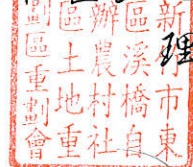 新竹市東
區溪橋自
辦農村社
區土地重
劃區重劃會
理